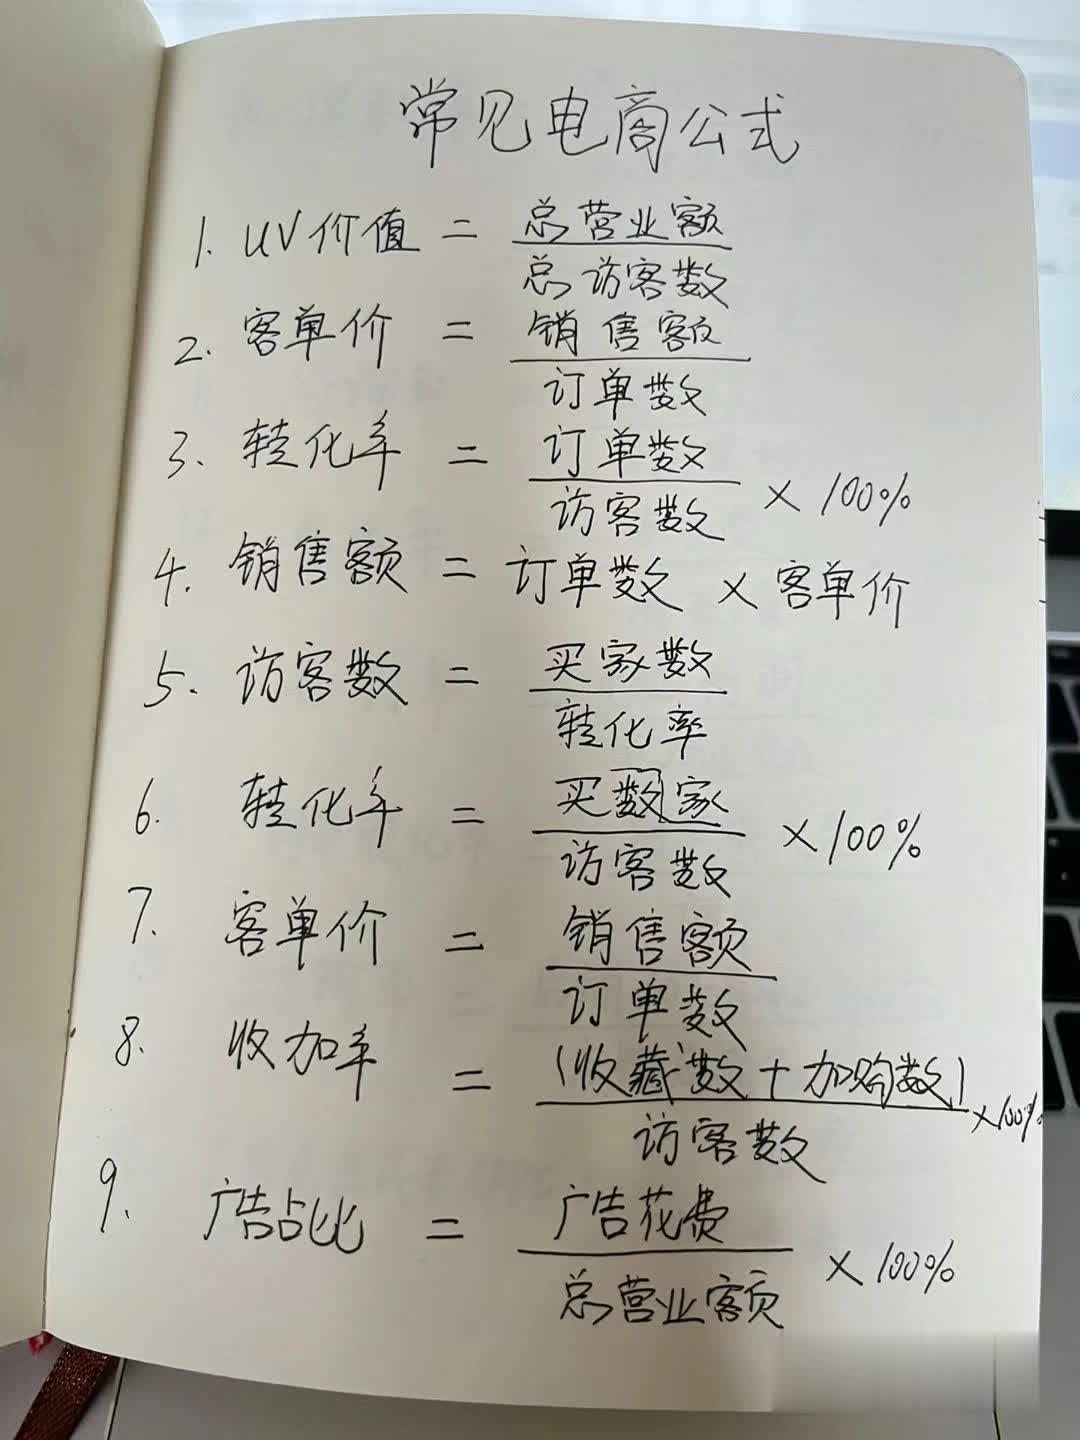 常见电商公式
1. UV价值 = 总营业额
总访客数
2. 客单价 = 销售额
订单数
3. 转化率 = 订单数
访客数 × 100%
4. 销售额 = 订单数 × 客单价
5. 访客数 = 买家数
转化率
6. 转化率 = 买数家
访客数 × 100%
7. 客单价 = 销售额
订单数
8. 收加率 = (收藏数 + 加购数)
访客数 ×100%
9. 广告占比 = 广告花费
总营业额 × 100%